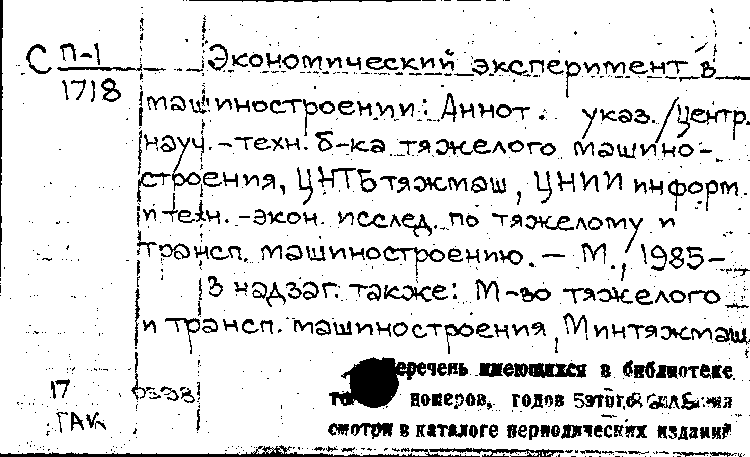 С П-1
1718
Экономический эксперимент в
машиностроении: Аннот. указ. /Центр.
науч.-техн. б-ка тяжелого машино-
строения, ЦНТБтяжмаш, ЦНИИ информ.
и техн.-экон. исслед. по тяжелому и
трансп. машиностроению. — М., 1985-
В надзаг. также: М-во тяжелого
и трансп. машиностроения, Минтяжмаш
17
ГАК
Перечень имеющихся в библиотеке
номеров, годов этого
смотри в каталоге периодических изданий